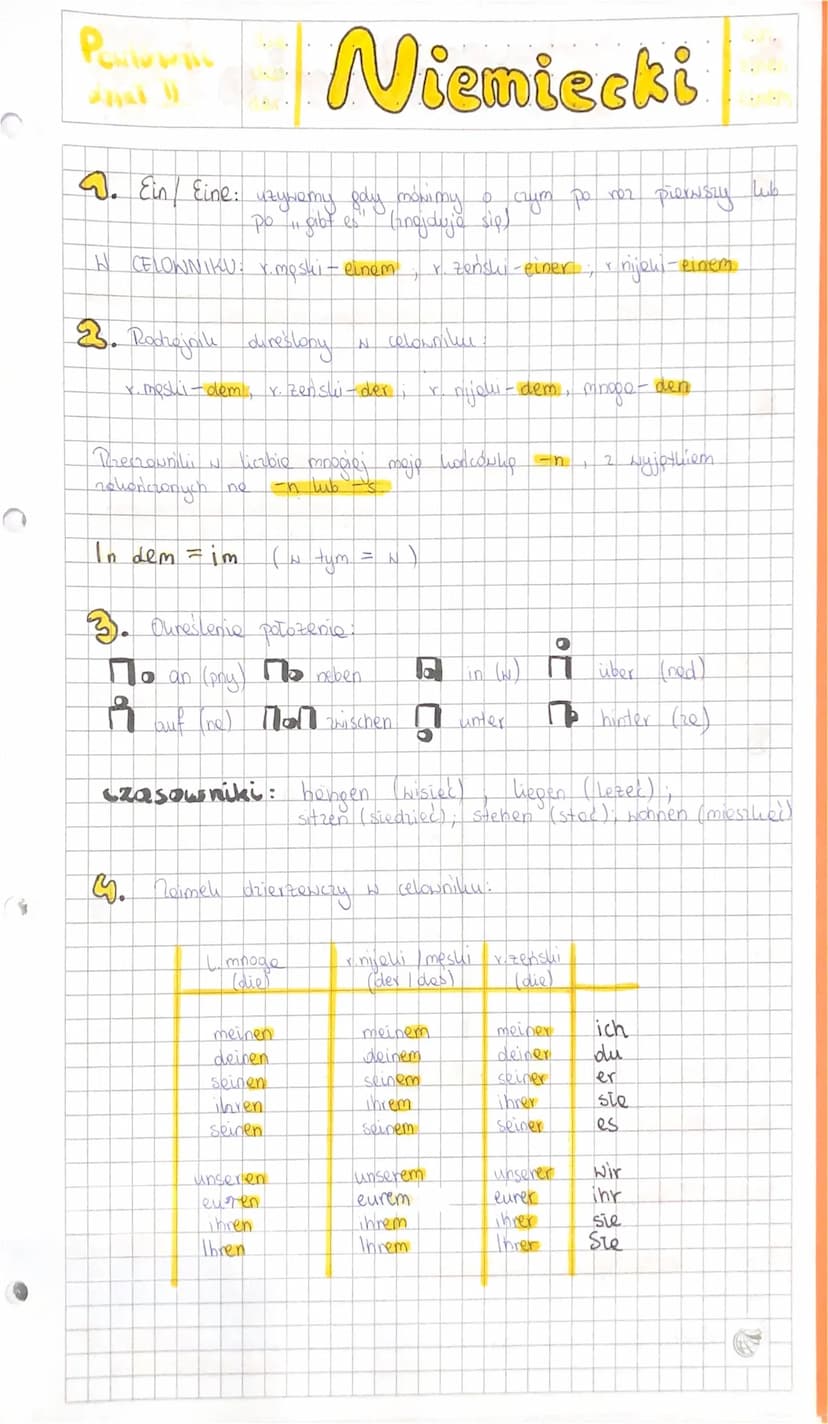 Niemiecki
1. Ein/ Eine: używamy gdy mówimy o czym po raz pierwszy lub
po „gibt es" (znajduje się)
W CELOWNIKU: r.męski-einem, r. żeński-einer; r nijaki-einem
2. Rodzajnik określony w celowniku:
r.męski-dem, r.żeński-der; r. nijaki-dem, mnoga-den
Rzeczowniki w liczbie mnogiej mają końcówkę -n, z wyjątkiem
zakończonych na -n lub -s
In dem = im (w tym = w)
3. Określenie położenia:
an (przy) neben in (w) über (nad)
auf (na) zwischen unter hinter (za)
czasowniki: hängen (wisieć), liegen (leżeć);
sitzen (siedzieć); stehen (stać); wohnen (mieszkać)
4. Zaimek dzierżawczy w celowniku:
L. mnoga r.nijaki/męski r.żeński
(die) (der/das) (die)
meinen meinem meiner ich
deinen deinem deiner du
seinen seinem seiner er
ihren ihrem ihrer sie
seinen seinem seiner es
unseren unserem unserer wir
euren eurem eurer ihr
ihren ihrem ihrer sie
Ihren Ihrem Ihrer Sie